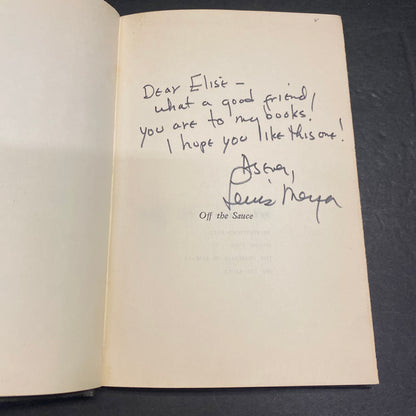 Dear Elise –
what a good friend
you are to my books.
I hope you like this one!
As ever,
Lewis Meyer
Off the Sauce